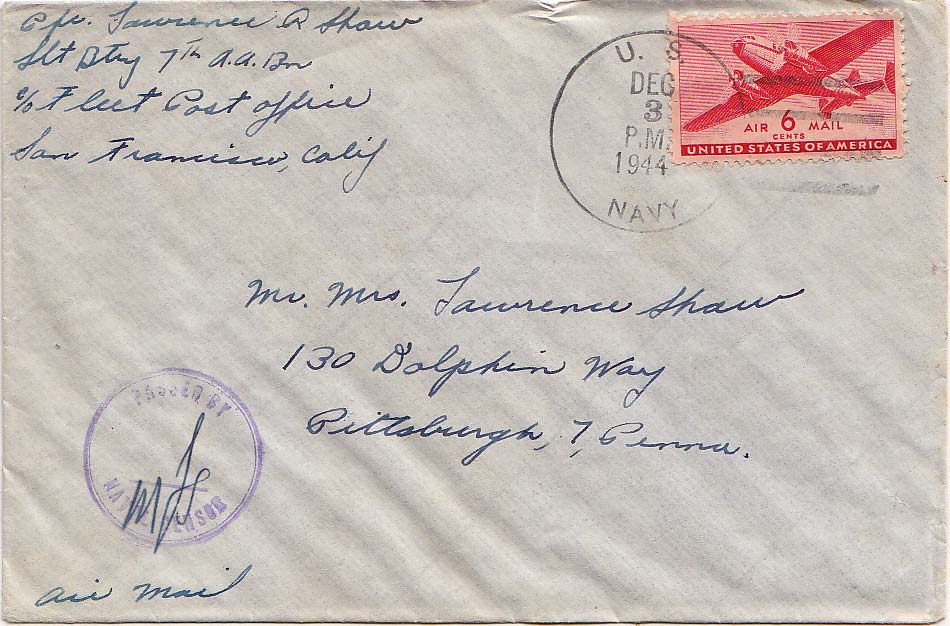 Pfc. Lawrence R Shaw
Slt Btry 7th A.A. Bn
c/o Fleet Post office
San Francisco, Calif
U. S.
DEC
3
P.M.
1944
NAVY
AIR 6 MAIL
CENTS
UNITED STATES OF AMERICA
Mr. Mrs. Lawrence Shaw
130 Dolphin Way
Pittsburgh, 7, Penna.
PASSED BY
NAVAL CENSOR
air mail